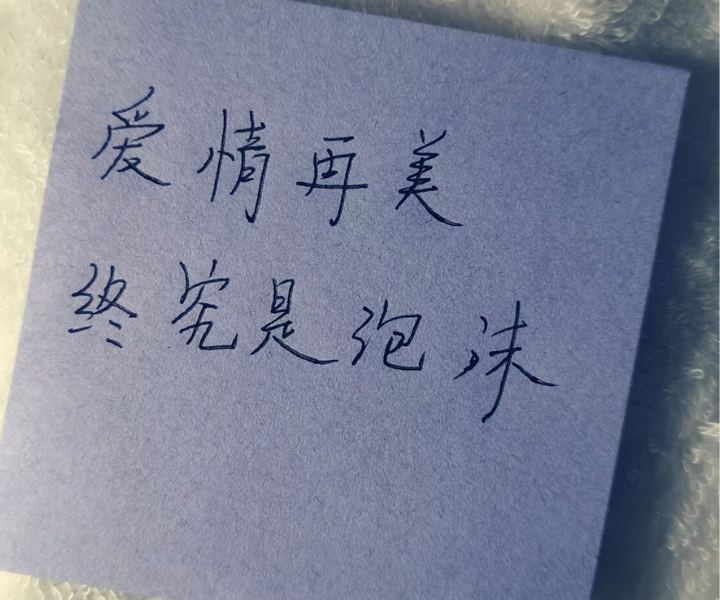 爱情再美
终究是泡沫